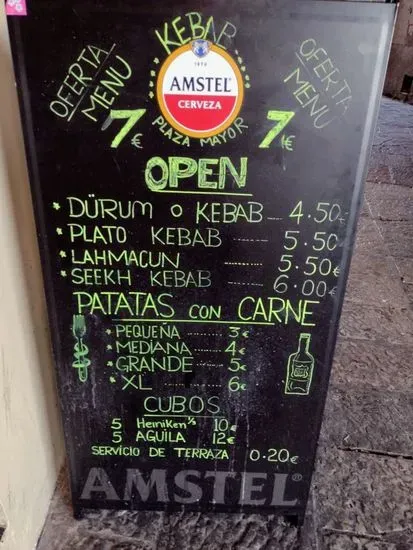 KEBAB
OFERTA MENU 7€
1870
AMSTEL
CERVEZA
PLAZA MAYOR
OFERTA MENU 7€
OPEN
* DÜRUM O KEBAB 4.50€
* PLATO KEBAB ---- 5.50€
* LAHMACUN ........ 5.50€
* SEEKH KEBAB ...... 6.00€
PATATAS CON CARNE
* PEQUEÑA ...... 3€
* MEDIANA ...... 4€
* GRANDE ...... 5€
* XL ........ 6€
CUBOS
5 Heiniken 1/3 10€
5 AGUILA 12€
SERVICIO DE TERRAZA 0.20€
AMSTEL®